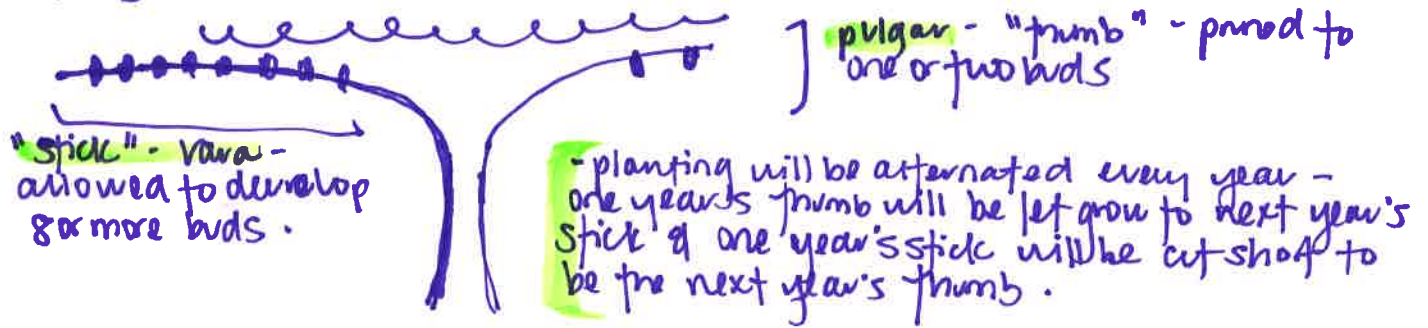 pulgar - "thumb" - pruned to
one or two buds
"stick" - vara -
allowed to develop
8 or more buds.
- planting will be alternated every year -
one year's thumb will be let grow to next year's
stick & one year's stick will be cut short to
be the next year's thumb.